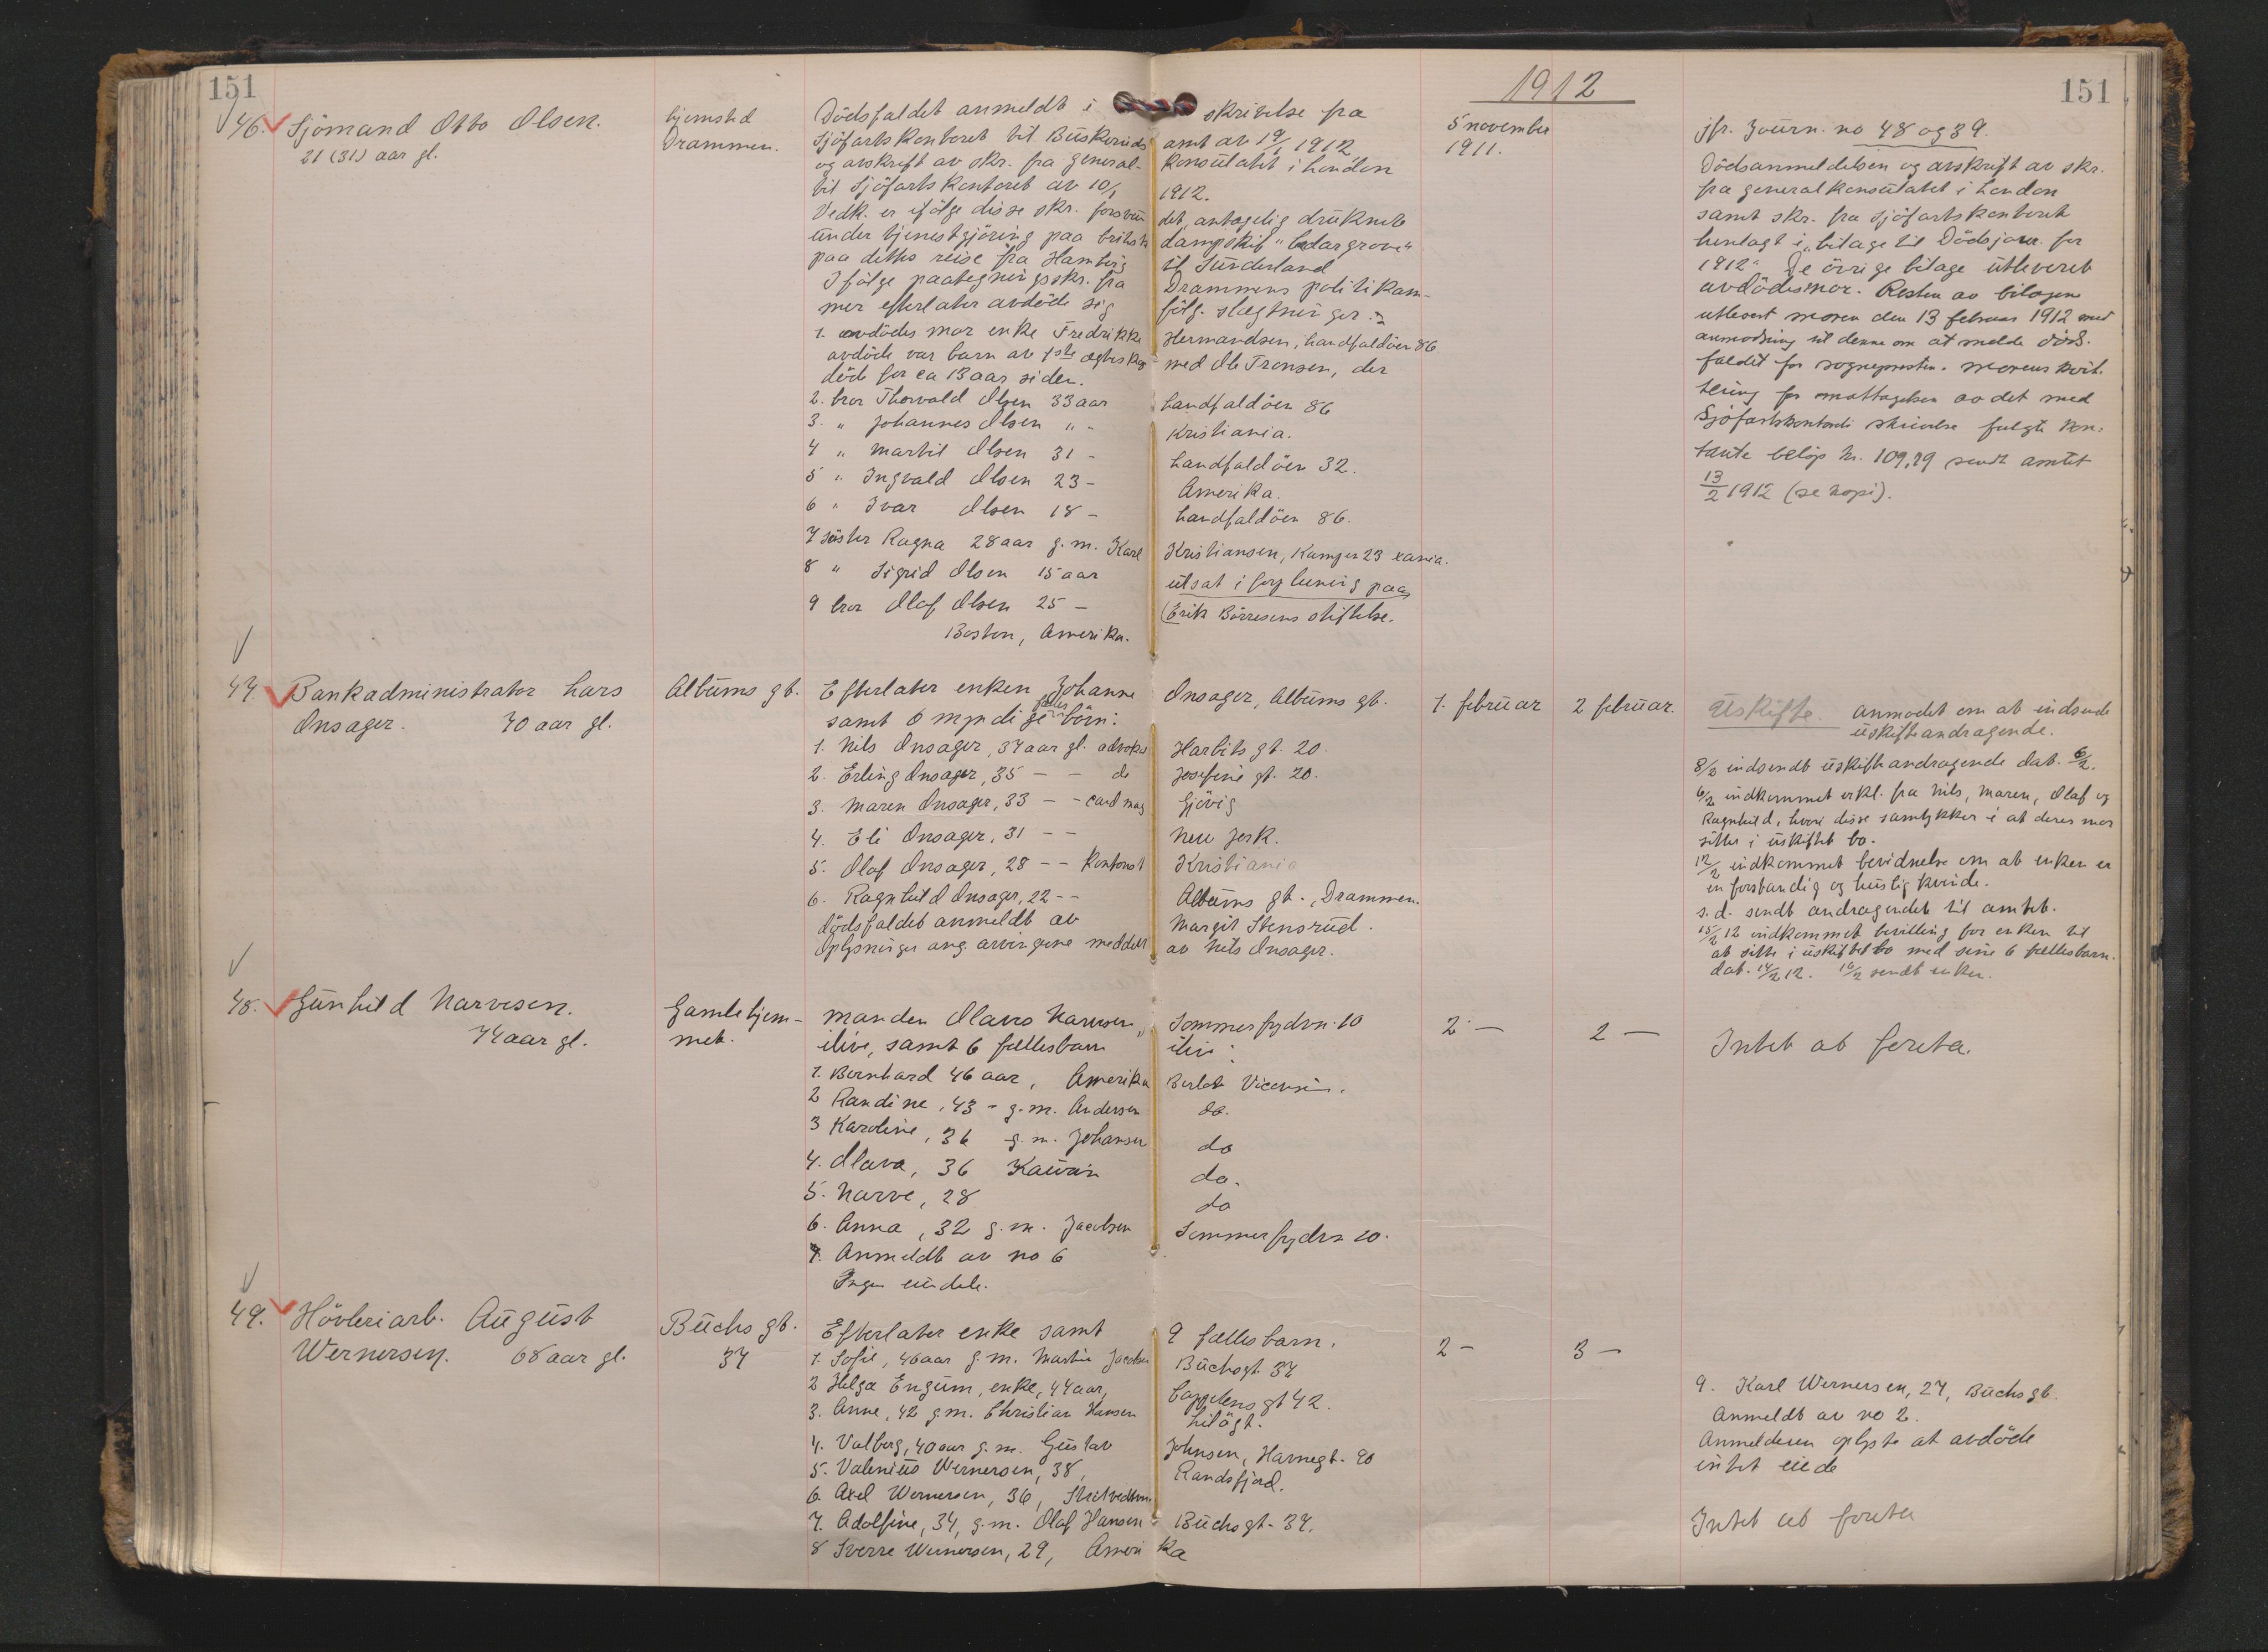 151
1912
151
46. Sjömand Otto Olsen.
21 (31) aar gl.
hjemsted
Drammen.
Dödsfaldet anmeldt i skrivelse fra
Sjöfartskontoret til Buskeruds amt av 19/1 1912
og avskrift av skr. fra general- konsulatet i London
til Sjöfartskontoret av 10/1 1912.
Vedk. er ifölge disse skr. forsvun det, antagelig druknet
under tjenestgjöring paa britisk dampskib "Cedargrove"
paa dettes reise fra Hamburg til Sunderland
Ifölge paategningsskr. fra Drammens politikam-
mer efterlater avdöde sig fölg. slægtninger:
1. avdödes mor enke Fredrikke Hermandsen, Landfaldöen 86
avdöde var barn av 1ste ægteskap med Ole Tronsen, der
döde for ca 13 aar siden.
2. bror Thorvald Olsen 33 aar Landfaldöen 86
3. " Johannes Olsen " - Kristiania.
4 " Martil Olsen 31 - Landfaldöen 32.
5 " Ingvald Olsen 23 - Amerika.
6 " Ivar Olsen 18 - Landfaldöen 86.
7 söster Ragna 28 aar g. m. Karl Kristiansen, Kampen 23 xania.
8 " Sigrid Olsen 15 aar utsat i forpleining paa
9 bror Olaf Olsen 25 - Erik Börresens stiftelse.
Boston, Amerika.
5 november
1911.
jfr. Journ. no 48 og 39.
Dödsanmeldelsen og avskrift av skr.
fra generalkonsulatet i London
samt skr. fra sjöfartskontoret
henlagt i "bilage til Dödsjour. for
1912" De övrige bilage utleveret
avdödes mor. Resten av bilagene
utlevert moren den 13 februar 1912 med
anmodning til denne om at melde döds-
faldet for sognepresten. Morens kvit-
tering for mottagelsen av det med
Sjöfartskontorets skrivelse fulgte kon-
tante belöp kr. 109,29 sendt amtet
13/2 1912 (se kopi).
47. Bankadministrator Lars
Onsager. 70 aar gl.
Albums gt.
Efterlater enken Johanne Onsager, Albums gt.
samt 6 myndige fælles börn:
1. Nils Onsager, 37 aar gl. advokat Harbits gt. 20.
2. Erling Onsager, 35 - - do Josefine gt. 20.
3. Maren Onsager, 33 - - cand mag Gjövig
4. Eli Onsager, 31 - - New York.
5. Olaf Onsager, 28 - - kontorist Kristiania
6. Ragnhild Onsager, 22 - - Albums gt., Drammen.
dödsfaldet anmeldt av Margit Stensrud.
Oplysninger ang. arvingene meddelt av Nils Onsager.
1. februar
2 februar.
Uskifte. Anmodet om at indsende
uskifteandragende.
8/2 indsendt uskifteandragende dat. 6/2.
6/2 indkommet erkl. fra Nils, Maren, Olaf og
Ragnhild, hvori disse samtykker i at deres mor
sitter i uskiftet bo.
12/2 indkommet bevidnelse om at enken er
en forstandig og huslig kvinde.
s. d. sendt andragendet til amtet.
15/2 12 indkommet bevilling for enken til
at sitte i uskiftet bo med sine 6 fællesbarn.
dat. 14/2 12. 16/2 sendt enken.
48. Gunhild Narvesen.
74 aar gl.
Gamlehjem-
met.
Manden Olavs Narvesen, Sommerfrydvn. 10
ilive, samt 6 fællesbarn ilive:
1. Bernhard 46 aar, Amerika
2 Randine, 43 - g. m. Andersen do.
3 Karoline, 36 g. m. Johansen do
4. Olava, 36 do.
5. Narve, 28 do
6. Anna, 32 g. m. Jacobsen Sommerfrydvn 10.
7. Anmeldt av no 6
Ingen eiendele.
2 -
2 -
Intet at foreta.
49. Hövleriarb. August
Wernersen. 68 aar gl.
Buchs gt.
37
Efterlater enke samt 9 fællesbarn.
1. Sofie, 46 aar g. m. Martin Jacobsen Buchsgt. 37
2 Helga Engum, enke, 44 aar, Cappelens gt 42.
3. Anne, 42 g m. Christian Hansen
4. Valborg, 40 aar g. m. Gustav Johnsen, Havnegt. 90
5. Valenius Wernersen, 38, Randsfjord.
6. Axel Wernersen, 36,
7. Adolfine, 34, g. m. Olaf Hansen Buchsgt. 37.
8 Sverre Wernersen, 29, Amerika
2 -
3 -
9. Karl Wernersen, 27, Buchsgt.
Anmeldt av no 2.
Anmelderen oplyste at avdöde
intet eiede
Intet at foreta